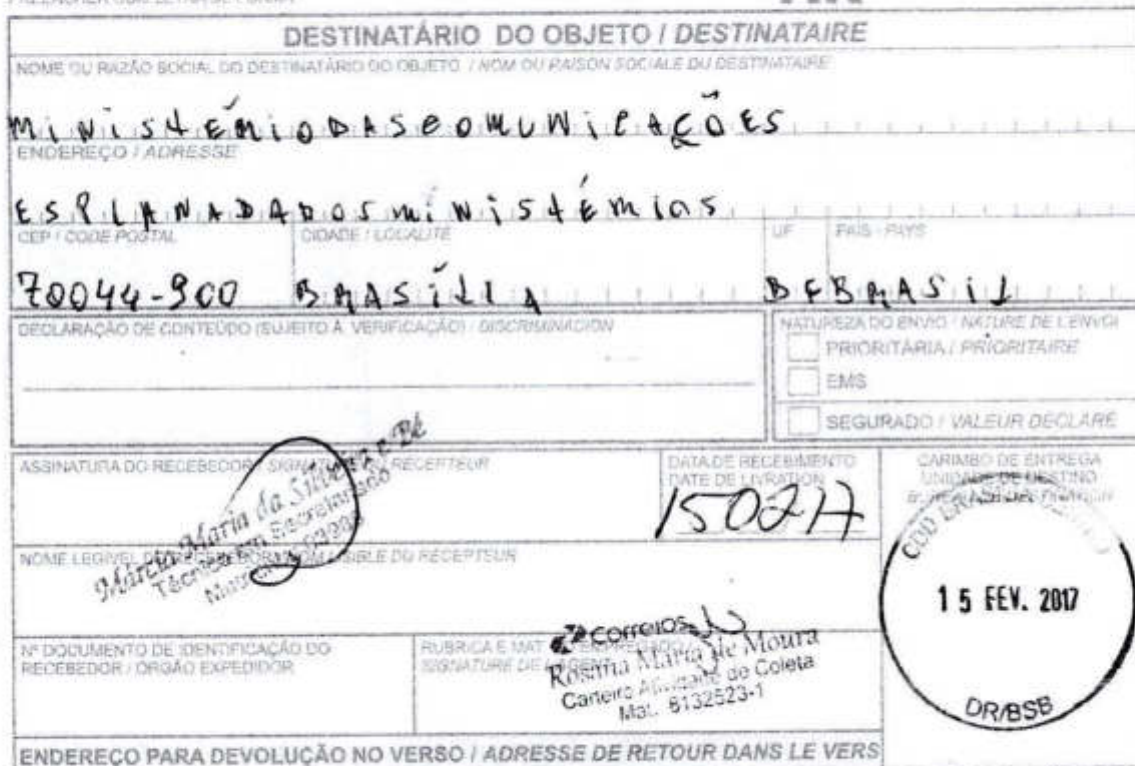 DESTINATÁRIO DO OBJETO / DESTINATAIRE
NOME OU RAZÃO SOCIAL DO DESTINATÁRIO DO OBJETO / NOM OU RAISON SOCIALE DU DESTINATAIRE
MINISTÉRIO DAS COMUNICAÇÕES
ENDEREÇO / ADRESSE
ESPLANADA DOS MINISTÉRIOS
CEP / CODE POSTAL CIDADE / LOCALITÉ UF PAÍS / PAYS
70044-900 BRASÍLIA DF BRASIL
DECLARAÇÃO DE CONTEÚDO (SUJEITO À VERIFICAÇÃO) / DISCRIMINACION
NATUREZA DO ENVIO / NATURE DE L'ENVOI
PRIORITÁRIA / PRIORITAIRE
EMS
SEGURADO / VALEUR DÉCLARÉ
ASSINATURA DO RECEBEDOR / SIGNATURE DU RÉCEPTEUR
Márcia Maria da
Técnico em Secretariado
DATA DE RECEBIMENTO
DATE DE LIVRATION
150217
CARIMBO DE ENTREGA
UNIDADE DE DESTINO
BUREAU DE DESTINATION
CDD BRASÍLIA
15 FEV. 2017
DR/BSB
NOME LEGÍVEL DO RECEBEDOR / NOM LISIBLE DU RÉCEPTEUR
Nº DOCUMENTO DE IDENTIFICAÇÃO DO
RECEBEDOR / ÓRGÃO EXPEDIDOR
RUBRICA E MAT. DO EMPREGADO
SIGNATURE DE L'AGENT
Correios
Rosária Maria de Moura
Carteiro Atividade de Coleta
Mat. 8132523-1
ENDEREÇO PARA DEVOLUÇÃO NO VERSO / ADRESSE DE RETOUR DANS LE VERS